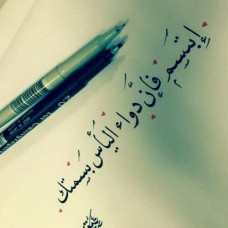 إبتسم فإن دواء اليأس بسمتك